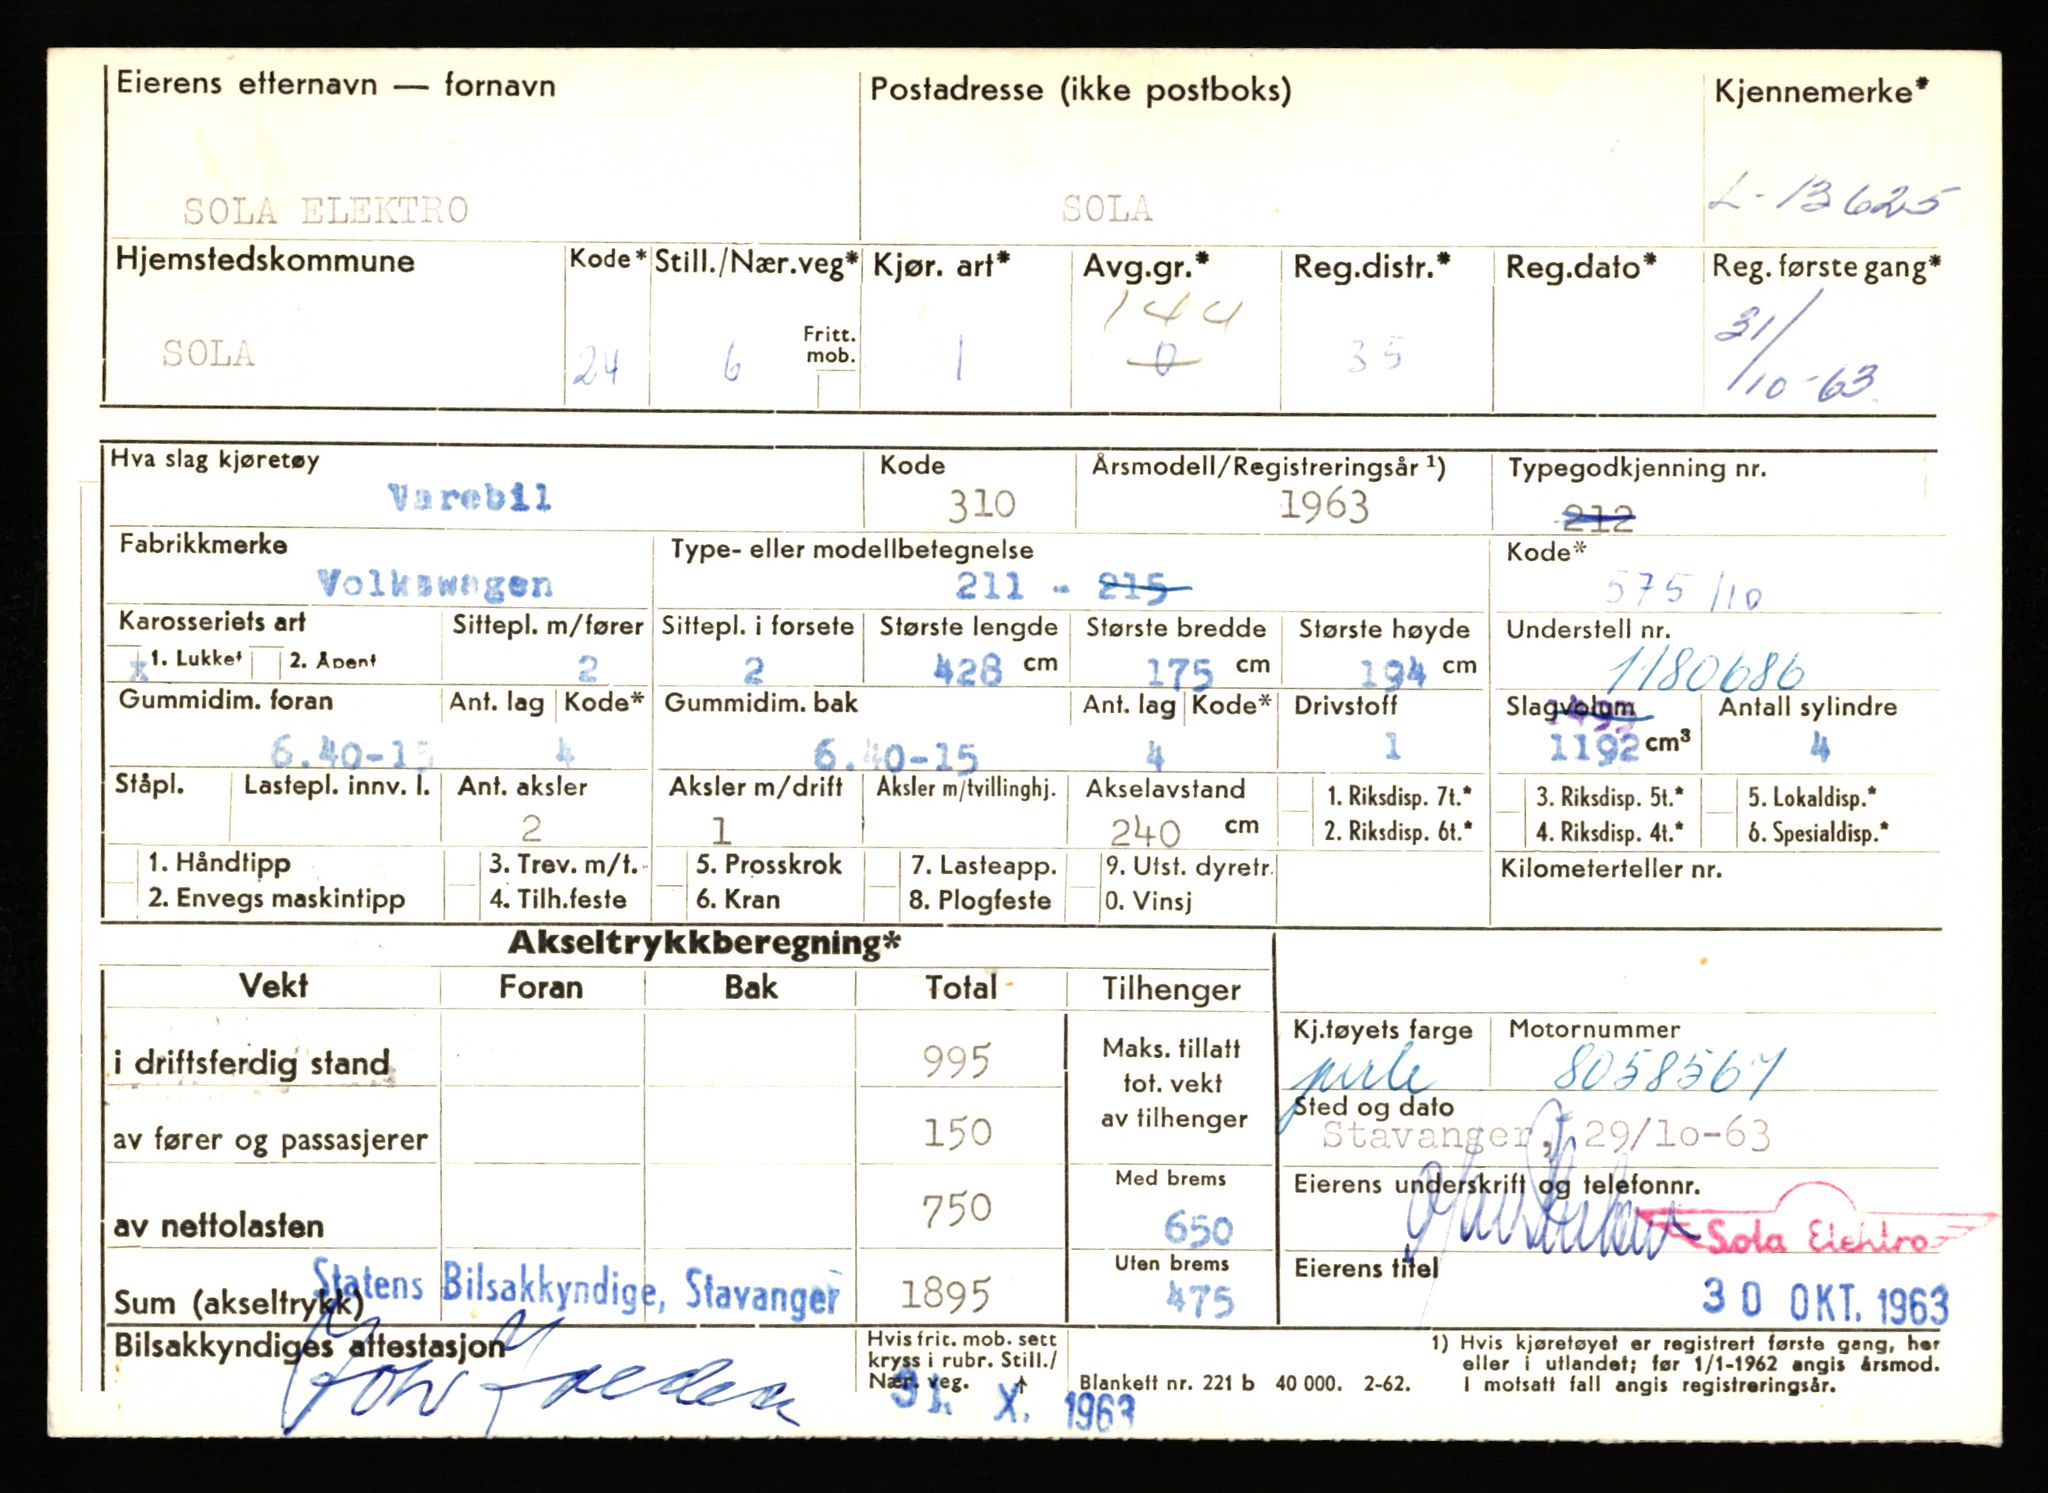 Eierens etternavn — fornavn Postadresse (ikke postboks) Kjennemerke*
SOLA ELEKTRO SOLA L-13625
Hjemstedskommune Kode* Still./Nær.veg* Kjør. art* Avg.gr.* Reg.distr.* Reg.dato* Reg. første gang*
144
Fritt.
mob.
SOLA 24 6 1 0 35 31/10-63
Hva slag kjøretøy Kode Årsmodell/Registreringsår ¹) Typegodkjenning nr.
Varebil 310 1963 212
Fabrikkmerke Type- eller modellbetegnelse Kode*
Volkswagen 211 - 215 575/10
Karosseriets art Sittepl. m/fører Sittepl. i forsete Største lengde Største bredde Største høyde Understell nr.
x 1. Lukket 2. Åpent 2 2 428 cm 175 cm 194 cm 1180686
Gummidim. foran Ant. lag Kode* Gummidim. bak Ant. lag Kode* Drivstoff Slagvolum Antall sylindre
6.40-15 4 6.40-15 4 1 1192 cm³ 4
Ståpl. Lastepl. innv. l. Ant. aksler Aksler m/drift Aksler m/tvillinghj. Akselavstand 1. Riksdisp. 7t.* 3. Riksdisp. 5t.* 5. Lokaldisp.*
2 1 240 cm 2. Riksdisp. 6t.* 4. Riksdisp. 4t.* 6. Spesialdisp.*
1. Håndtipp 3. Trev. m/t. 5. Prosskrok 7. Lasteapp. 9. Utst. dyretr. Kilometerteller nr.
2. Envegs maskintipp 4. Tilh.feste 6. Kran 8. Plogfeste 0. Vinsj
Akseltrykkberegning*
Vekt Foran Bak Total Tilhenger
Kj.tøyets farge Motornummer
i driftsferdig stand 995 Maks. tillatt
tot. vekt
av tilhenger
perle 8058567
Sted og dato
av fører og passasjerer 150 Stavanger, 29/10-63
Med brems Eierens underskrift og telefonnr.
av nettolasten 750 650 Sola Elektro
Uten brems Eierens titel
Statens Bilsakkyndige, Stavanger
Sum (akseltrykk) 1895 475 30 OKT. 1963
Bilsakkyndiges attestasjon
Hvis frit. mob. sett
kryss i rubr. Still./
Nær. veg. ↑
Blankett nr. 221 b 40 000. 2-62.
31. X. 1963
1) Hvis kjøretøyet er registrert første gang, her
eller i utlandet; før 1/1-1962 angis årsmod.
I motsatt fall angis registreringsår.